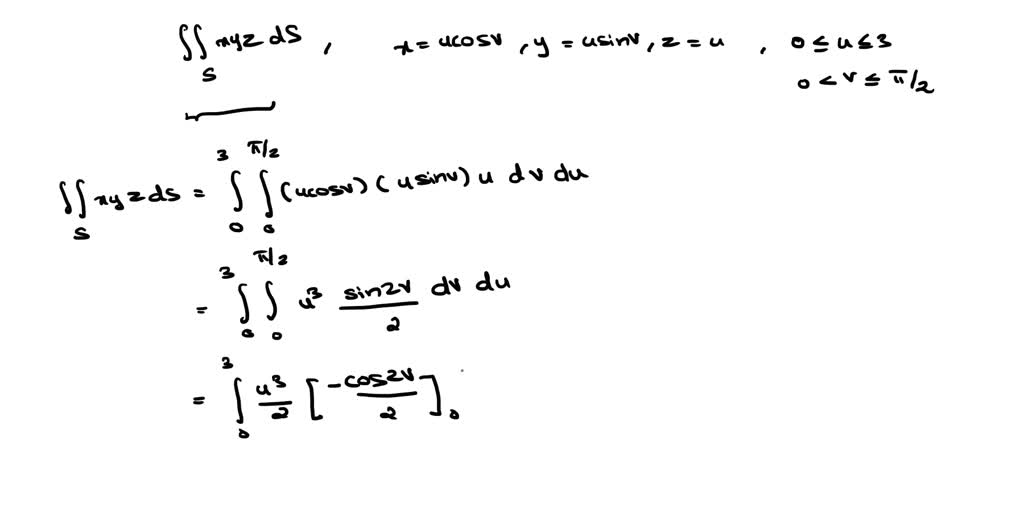 ∬_S xyz dS , x = ucosv , y = usinv , z = u , 0 ≤ u ≤ 3
0 < v ≤ π/2
∬_S xyz ds = ∫_0^3 ∫_0^{π/2} (ucosv) (usinv) u dv du
= ∫_0^3 ∫_0^{π/2} u^3 sin2v/2 dv du
= ∫_0^3 u^3/2 [-cos2v/2]_0